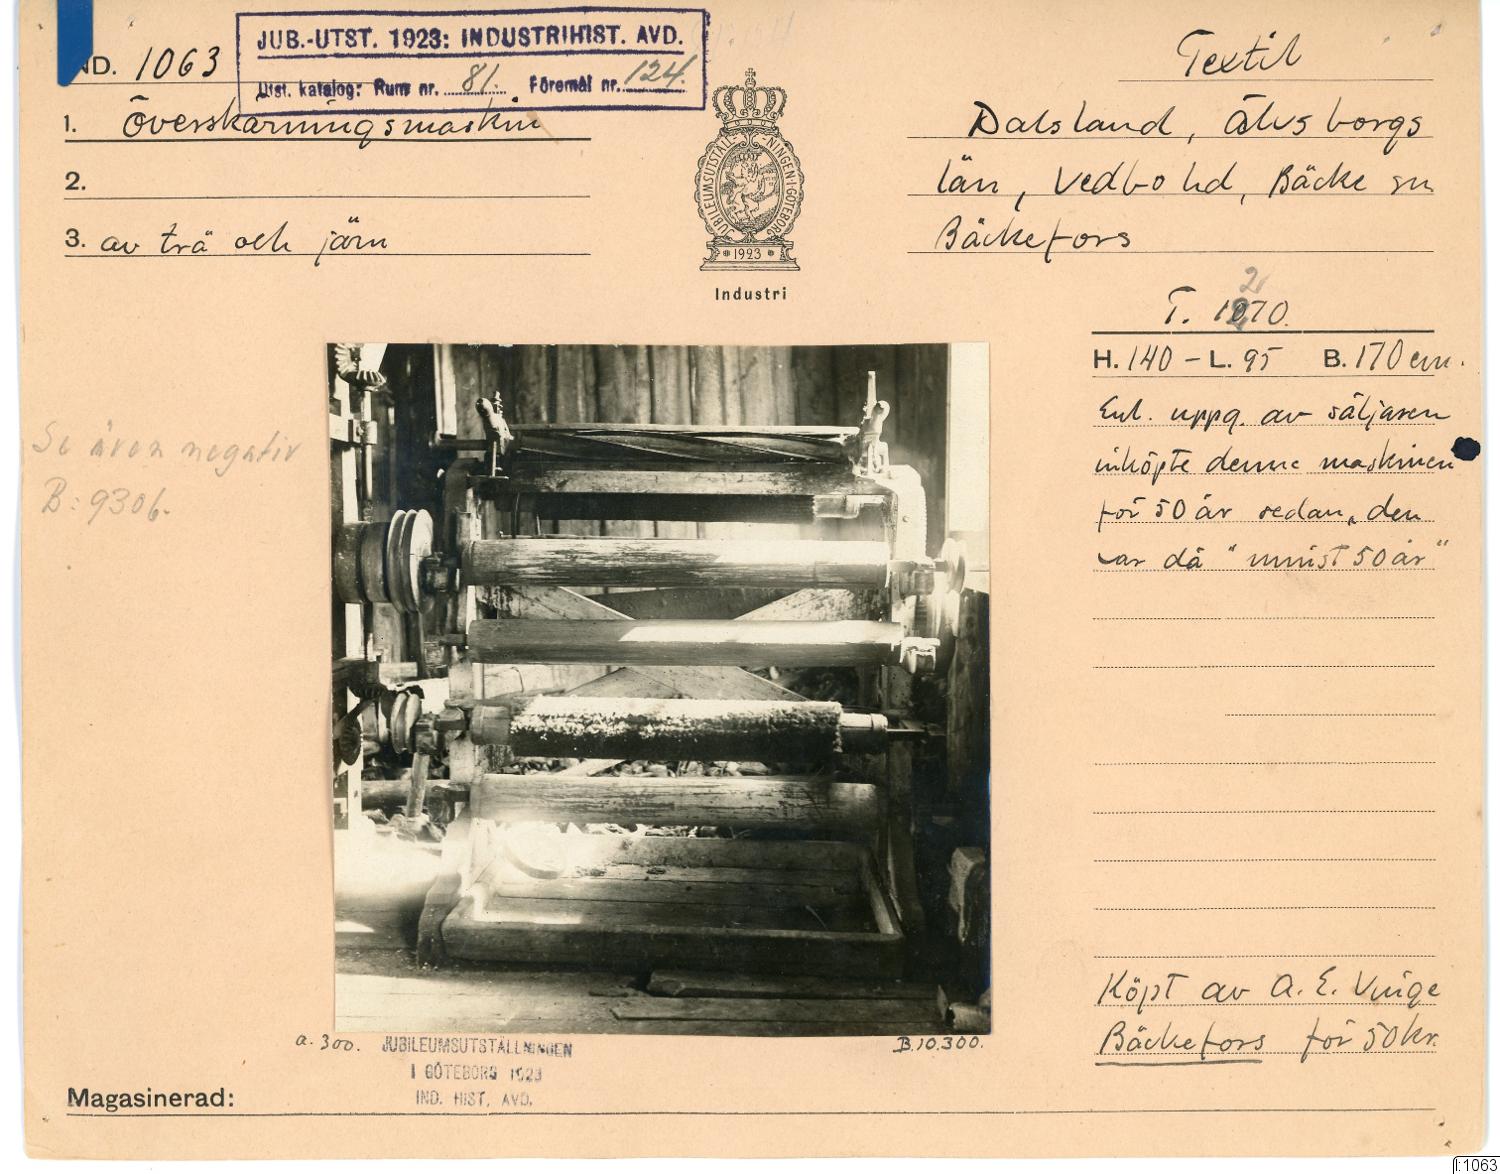 JUB.-UTST. 1923: INDUSTRIHIST. AVD.
Utst. katalog: Rum nr. 81. Föremål nr. 124.
ND. 1063
1. Överskärningsmaskin
2.
3. av trä och järn
JUBILEUMSUTSTÄLLNINGEN·I·GÖTEBORG
1923
Industri
Textil
Dalsland, Älvsborgs
län, Vedbo hd, Bäcke sn
Bäckefors
2
T. 1070.
H. 140 - L. 95 B. 170 cm.
Enl. uppg. av säljaren
inköpte denne maskinen
för 50 år sedan, den
var då "minst 50 år"
Köpt av A. E. Vinge
Bäckefors för 50 kr.
Se även negativ
B: 9306.
a. 300.
JUBILEUMSUTSTÄLLNINGEN
I GÖTEBORG 1923
IND. HIST. AVD.
B. 10.300.
Magasinerad:
I:1063